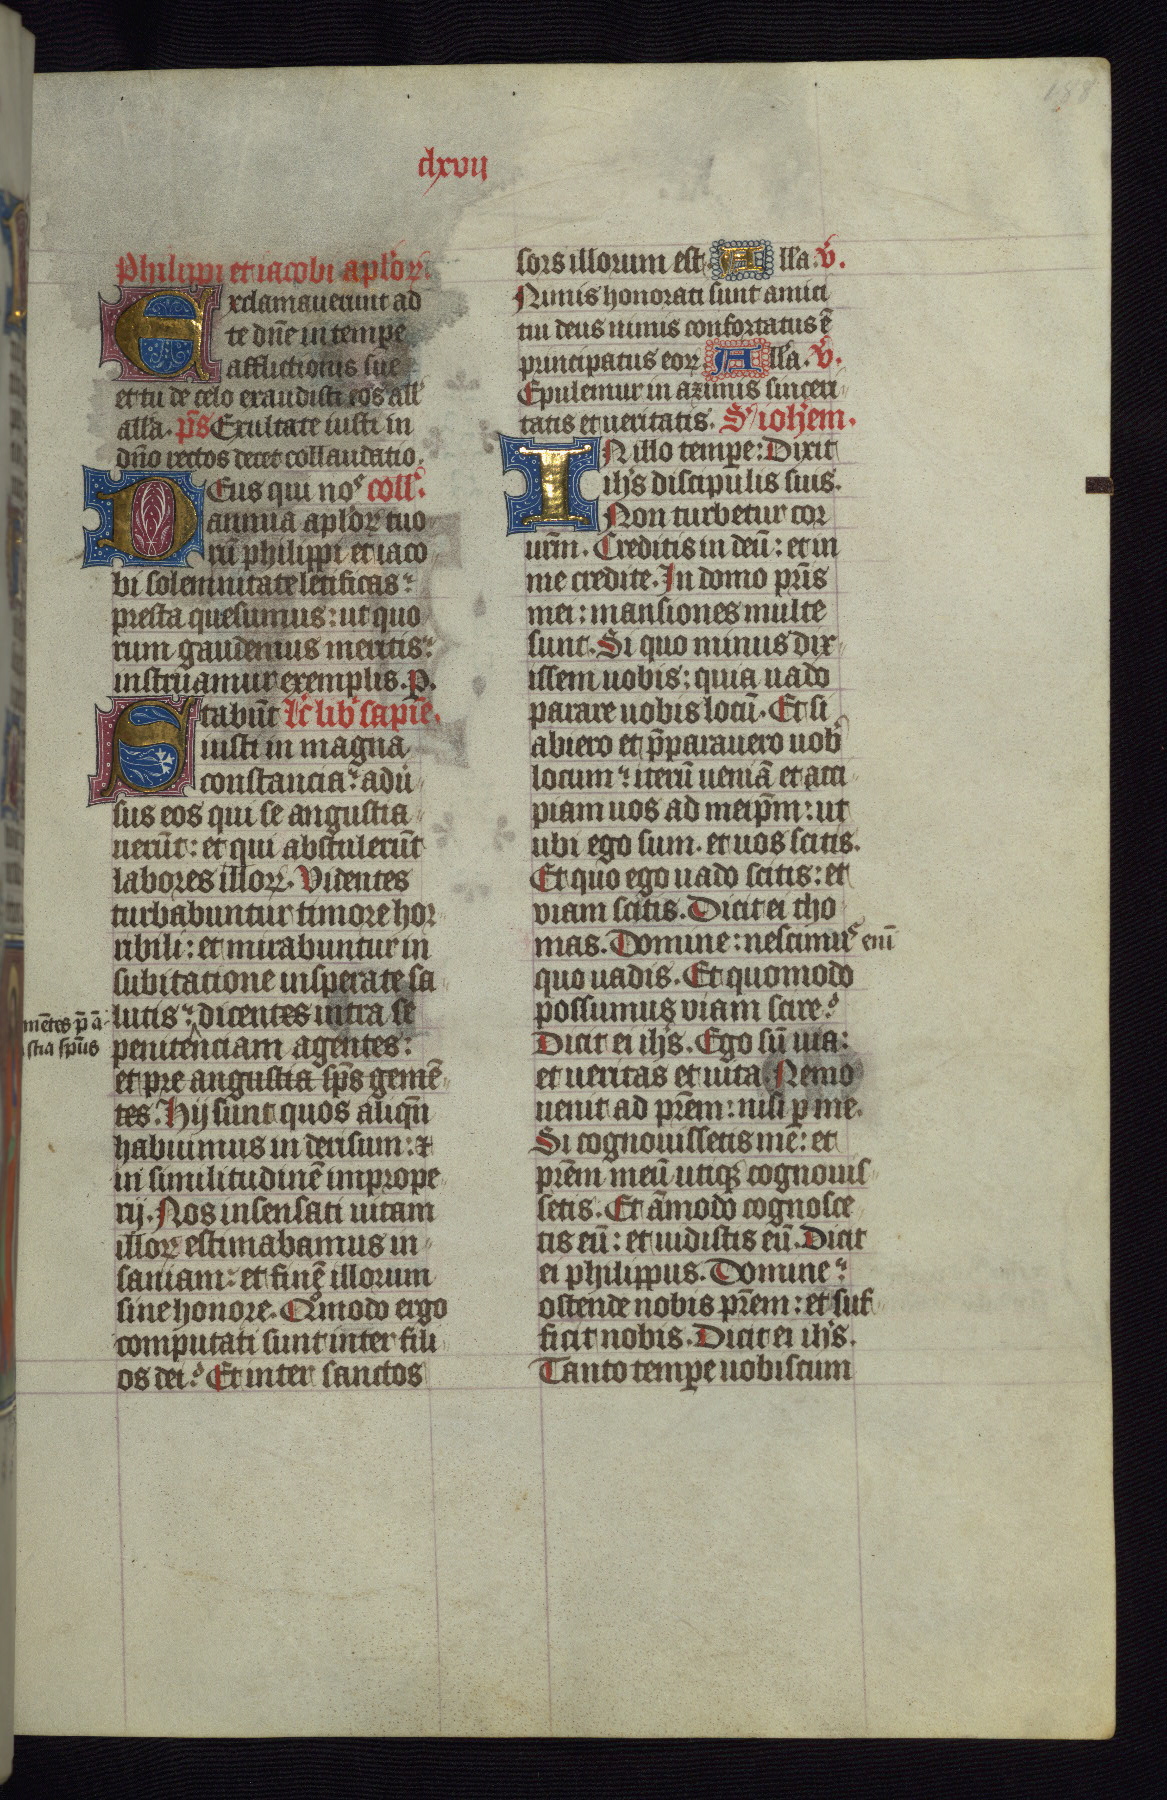 188
clxvij
Philippi et iacobi aplor̄.
Exclamauerunt ad
te dn̄e in tempe
afflictionis sue
et tu de celo exaudisti eos all'
alla. p̄s Exultate iusti in
dn̄o rectos decet collaudatio.
Deus qui nos coll'.
annua aplor̄ tuo
rū philippi et iaco
bi solemnitate letificas:
presta quesumus: ut quo
rum gaudemus meritis:
instruamur exemplis. P.
Stabūt Lc̄ lib' sapiē.
iusti in magna
constancia: adū
sus eos qui se angustia
uerūt: et qui abstulerūt
labores illor̄. Videntes
turbabuntur timore hor
ribili: et mirabuntur in
subitatione insperate sa
lutis: dicentes intra se
penitenciam agentes:
et pre angustia sp̄s gemē
tes. Hij sunt quos aliqn̄
habuimus in derisum: &
in similitudinē imprope
rij. Nos insensati uitam
illor̄ estimabamus in
saniam: et finē illorum
sine honore. Qomodo ergo
computati sunt inter fili
os dei? Et inter sanctos
mētes p̄ ā
stia sp̄us
sors illorum est. Alla. v̄.
Nimis honorati sunt amici
tui deus nimis confortatus ē
principatus eor̄. Alla. v̄.
Epulemur in azimis sinceri
tatis et ueritatis. S' ioh̄em.
IN illo tempe: Dixit
ih̄s discipulis suis.
Non turbetur cor
ur̄m. Creditis in deū: et in
me credite. In domo pr̄is
mei: mansiones multe
sunt. Si quo minus dix
issem uobis: quia uado
parare uobis locū. Et si
abiero et p̄parauero uob'
locum: iterū ueniā et acci
piam uos ad meip̄m: ut
ubi ego sum. et uos scitis.
Et quo ego uado scitis: et
viam scitis. Dicit ei tho
mas. Domine: nescimus enī
quo uadis. Et quomodo
possumus viam scire?
Dicit ei ih̄s. Ego sū uia:
et ueritas et uita. Nemo
uenit ad pr̄em: nisi p me.
Si cognouissetis me: et
pr̄em meū utiq; cognouis
setis. Et āmodo cognosce
tis eū: et uidistis eū. Dicit
ei philippus. Domine:
ostende nobis pr̄em: et suf
ficit nobis. Dicit ei ih̄s.
Tanto tempe uobiscum